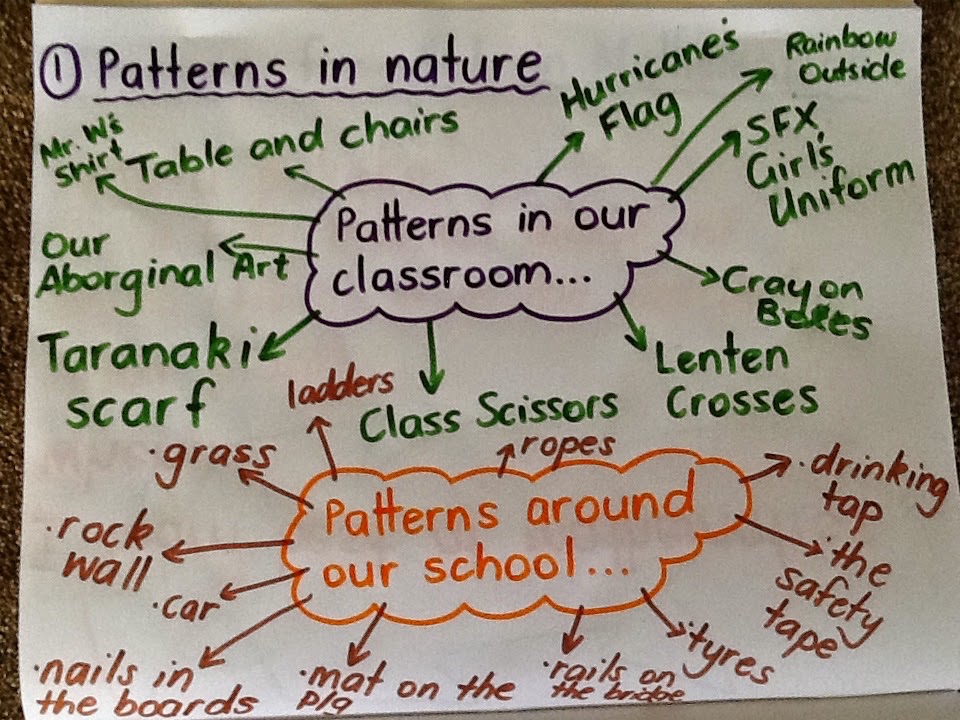 ① Patterns in nature
Hurricane's
Flag
Rainbow
Outside
Mr. W's
Shirt
Table and chairs
SFX,
Girl's
Uniform
Patterns in our
classroom...
Our
Aborginal Art
Crayon
Boxes
Taranaki
scarf
Class Scissors
Lenten
Crosses
ladders
·grass
ropes
·drinking
tap
Patterns around
our school...
·rock
wall
·the
safety
tape
·car
·nails in
the boards
·mat on the
p/g
·rails on
the bridge
·tyres